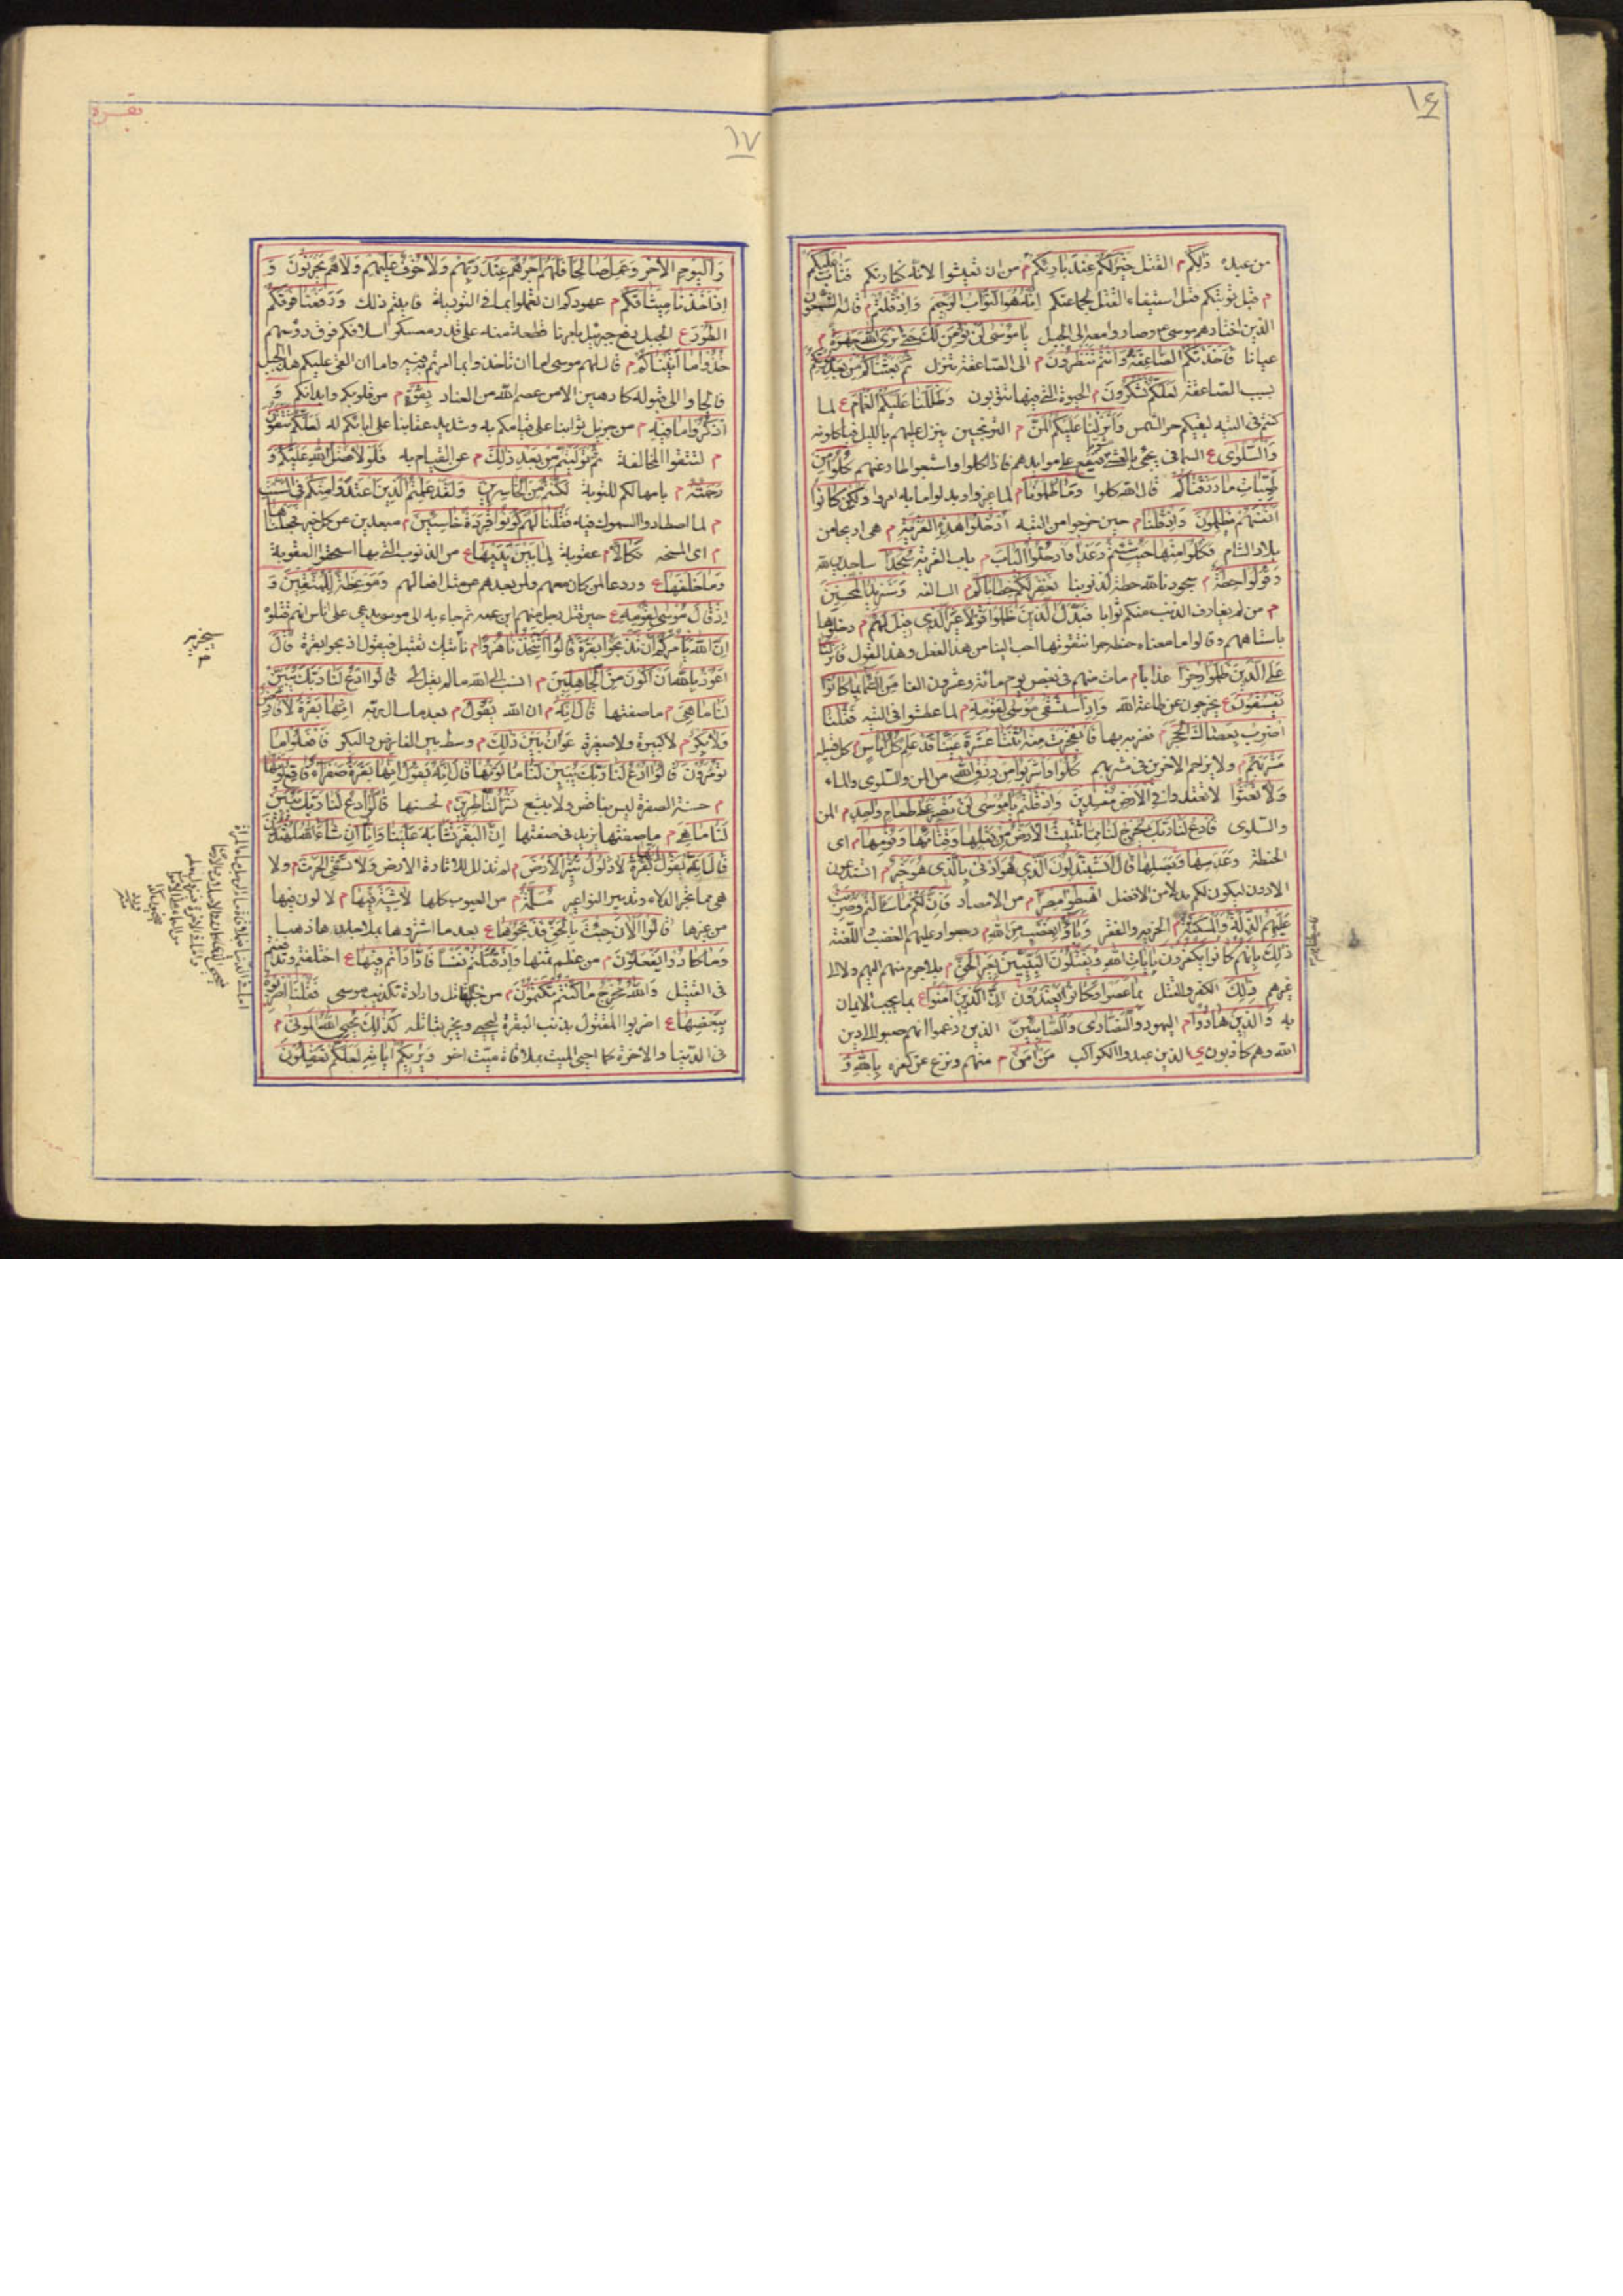 ١٤
من عبده ذٰلِكُم م القتل خَيْرٌ لَكُمْ عِنْدَ بَارِئِكُمْ م من ان تعيشوا لانه كفارتكم فَتَابَ عَلَيْكُمْ
م قبل توبتكم قبل استيفاء القتل لجماعتكم اِنَّهُ هُوَ التَّوَّابُ الرَّحِيمُ وَاِذْ قُلْتُمْ م قاله السبعون
الذين اختارهم موسى ع وصاروا معه الى الجبل يَا مُوسَى لَنْ نُؤْمِنَ لَكَ حَتّٰى نَرَى اللّٰهَ جَهْرَةً م
عيانا فَاَخَذَتْكُمُ الصَّاعِقَةُ وَاَنْتُمْ تَنْظُرُونَ م الى الصاعقة تنزل ثُمَّ بَعَثْنَاكُمْ مِنْ بَعْدِ مَوْتِكُمْ
بسبب الصاعقة لَعَلَّكُمْ تَشْكُرُونَ م الحيوة التى فيها تتوبون وَظَلَّلْنَا عَلَيْكُمُ الْغَمَامَ ع لما
كنتم فى التيه ليقيكم حر الشمس وَاَنْزَلْنَا عَلَيْكُمُ الْمَنَّ م الترنجبين ينزل عليهم بالليل فياكلونه
وَالسَّلْوٰى ع السمانى يجئ بالعشى فيقع على موايدهم فاذا اكلوا وشبعوا طار عنهم كُلُوا مِنْ
طَيِّبَاتِ مَا رَزَقْنَاكُمْ قال الله كلوا وَمَا ظَلَمُونَا م لما غيروا وبدلوا ما به امروا وَلٰكِنْ كَانُوا
اَنْفُسَهُمْ يَظْلِمُونَ وَاِذْ قُلْنَا م حين خرجوا من التيه ادْخُلُوا هٰذِهِ الْقَرْيَةَ م هى اريحا من
بلاد الشام فَكُلُوا مِنْهَا حَيْثُ شِئْتُمْ رَغَدًا وَادْخُلُوا الْبَابَ م باب القرية سُجَّدًا ساجدين لله
وَقُولُوا حِطَّةٌ م سجودنا لله حطة لذنوبنا نَغْفِرْ لَكُمْ خَطَايَاكُمْ م السالفة وَسَنَزِيدُ الْمُحْسِنِينَ
م من لم يقارف الذنب منكم ثوابا فَبَدَّلَ الَّذِينَ ظَلَمُوا قَوْلًا غَيْرَ الَّذِى قِيلَ لَهُمْ م دخلوها
باستاههم وقالوا ما معناه حنطة حمراء نتقوتها احب الينا من هذا الفعل وهذا القول فَاَنْزَلْنَا
عَلَى الَّذِينَ ظَلَمُوا رِجْزًا عذابا م مات منهم فى بعض يوم مائة وعشرون الفا مِنَ السَّمَاءِ بِمَا كَانُوا
يَفْسُقُونَ ع يخرجون عن طاعة الله وَاِذِ اسْتَسْقٰى مُوسٰى لِقَوْمِهِ م لما عطشوا فى التيه فَقُلْنَا
اضْرِبْ بِعَصَاكَ الْحَجَرَ م فضربه بها فَانْفَجَرَتْ مِنْهُ اثْنَتَا عَشْرَةَ عَيْنًا قَدْ عَلِمَ كُلُّ اُنَاسٍ كل قبيلة
مَشْرَبَهُمْ م ولا يزاحم الاخرين فى مشربهم كُلُوا وَاشْرَبُوا مِنْ رِزْقِ اللّٰهِ من المن والسلوى والماء
وَلَا تَعْثَوْا لا تعتدوا فِى الْاَرْضِ مُفْسِدِينَ وَاِذْ قُلْتُمْ يَا مُوسٰى لَنْ نَصْبِرَ عَلٰى طَعَامٍ وَاحِدٍ م المن
والسلوى فَادْعُ لَنَا رَبَّكَ يُخْرِجْ لَنَا مِمَّا تُنْبِتُ الْاَرْضُ مِنْ بَقْلِهَا وَقِثَّائِهَا وَفُومِهَا م اى
الحنطة وَعَدَسِهَا وَبَصَلِهَا قَالَ اَتَسْتَبْدِلُونَ الَّذِى هُوَ اَدْنٰى بِالَّذِى هُوَ خَيْرٌ م اتستدعون
الادون ليكون لكم بدلا من الافضل اهْبِطُوا مِصْرًا م من الامصار فَاِنَّ لَكُمْ مَا سَاَلْتُمْ وَضُرِبَتْ
عَلَيْهِمُ الذِّلَّةُ وَالْمَسْكَنَةُ م الجزية والفقر وَبَاؤُا بِغَضَبٍ مِنَ اللّٰهِ م رجعوا وعليهم الغضب واللعنة
ذٰلِكَ بِاَنَّهُمْ كَانُوا يَكْفُرُونَ بِاٰيَاتِ اللّٰهِ وَيَقْتُلُونَ النَّبِيِّينَ بِغَيْرِ الْحَقِّ م بلا جرم منهم اليهم ولا الى
غيرهم ذٰلِكَ الكفر والقتل بِمَا عَصَوْا وَكَانُوا يَعْتَدُونَ اِنَّ الَّذِينَ اٰمَنُوا ع بما يجب الايمان
به وَالَّذِينَ هَادُوا م اليهود وَالنَّصَارٰى وَالصَّابِئِينَ الذين زعموا انهم صبوا الى دين
الله وهم كاذبون ى الذين عبدوا الكواكب مَنْ اٰمَنَ م منهم ونزع عن كفره بِاللّٰهِ وَ
بقره
١٧
وَالْيَوْمِ الْاٰخِرِ وَعَمِلَ صَالِحًا فَلَهُمْ اَجْرُهُمْ عِنْدَ رَبِّهِمْ وَلَا خَوْفٌ عَلَيْهِمْ وَلَا هُمْ يَحْزَنُونَ وَ
اِذْ اَخَذْنَا مِيثَاقَكُمْ م عهودكم ان تعملوا بما فى التورية فابيتم ذلك وَرَفَعْنَا فَوْقَكُمُ
الطُّورَ ع الجبل رفع جبرئيل بامرنا قطعة منه على قدر معسكر اسلافكم فوق رؤسهم
خُذُوا مَا اٰتَيْنَاكُمْ م قال لهم موسى اما ان تاخذوا بما امرتم فيه واما ان القى عليكم هذا الجبل
فالجاوا الى قبوله كارهين الا من عصم الله من العناد بِقُوَّةٍ م من قلوبكم وابدانكم وَ
اذْكُرُوا مَا فِيهِ م من جزيل ثوابنا على قيامكم به وشديد عقابنا على ابائكم له لَعَلَّكُمْ تَتَّقُونَ
م لتتقوا المخالفة ثُمَّ تَوَلَّيْتُمْ مِنْ بَعْدِ ذٰلِكَ م عن القيام به فَلَوْلَا فَضْلُ اللّٰهِ عَلَيْكُمْ وَ
رَحْمَتُهُ م بامهالكم للتوبة لَكُنْتُمْ مِنَ الْخَاسِرِينَ وَلَقَدْ عَلِمْتُمُ الَّذِينَ اعْتَدَوْا مِنْكُمْ فِى السَّبْتِ
م لما اصطادوا السموك فيه فَقُلْنَا لَهُمْ كُونُوا قِرَدَةً خَاسِئِينَ م مبعدين عن كل خير فَجَعَلْنَاهَا
م اى المسخة نَكَالًا م عقوبة لِمَا بَيْنَ يَدَيْهَا ع من الذنوب التى بها استحقوا العقوبة
وَمَا خَلْفَهَا ع وردعا لمن كان معهم ولمن بعدهم عن مثل افعالهم وَمَوْعِظَةً لِلْمُتَّقِينَ وَ
اِذْ قَالَ مُوسٰى لِقَوْمِهِ ع حين قتل رجل منهم ابن عمه ثم جاء به الى موسى يدعى على اناس انهم قتلوه
اِنَّ اللّٰهَ يَاْمُرُكُمْ اَنْ تَذْبَحُوا بَقَرَةً قَالُوا اَتَتَّخِذُنَا هُزُوًا م ناتيك بقتيل فيقول اذبحوا بقرة قَالَ
اَعُوذُ بِاللّٰهِ اَنْ اَكُونَ مِنَ الْجَاهِلِينَ م انسب الى الله ما لم يقل لى قَالُوا ادْعُ لَنَا رَبَّكَ يُبَيِّنْ
لَنَا مَا هِىَ م ما صفتها قَالَ اِنَّهُ م ان الله يَقُولُ م بعد ما سال ربه اِنَّهَا بَقَرَةٌ لَا فَارِضٌ
وَلَا بِكْرٌ م لا كبيرة ولا صغيرة عَوَانٌ بَيْنَ ذٰلِكَ م وسط بين الفارض والبكر فَافْعَلُوا مَا
تُؤْمَرُونَ قَالُوا ادْعُ لَنَا رَبَّكَ يُبَيِّنْ لَنَا مَا لَوْنُهَا قَالَ اِنَّهُ يَقُولُ اِنَّهَا بَقَرَةٌ صَفْرَاءُ فَاقِعٌ لَوْنُهَا
م حسنة الصفرة ليس بناقص ولا يشبع تَسُرُّ النَّاظِرِينَ م لحسنها قَالُوا ادْعُ لَنَا رَبَّكَ يُبَيِّنْ
لَنَا مَا هِىَ م ما صفتها يزيد فى صفتها اِنَّ الْبَقَرَ تَشَابَهَ عَلَيْنَا وَاِنَّا اِنْ شَاءَ اللّٰهُ لَمُهْتَدُونَ
قَالَ اِنَّهُ يَقُولُ اِنَّهَا بَقَرَةٌ لَا ذَلُولٌ تُثِيرُ الْاَرْضَ م لم تذلل لاثارة الارض وَلَا تَسْقِى الْحَرْثَ م ولا
هى مما تجر الدلاء وتدير النواعير مُسَلَّمَةٌ م من العيوب كلها لَا شِيَةَ فِيهَا م لا لون فيها
من غيرها قَالُوا الْاٰنَ جِئْتَ بِالْحَقِّ فَذَبَحُوهَا ع بعد ما اشتروها بملا جلدها ذهبا
وَمَا كَادُوا يَفْعَلُونَ م من عظم ثمنها وَاِذْ قَتَلْتُمْ نَفْسًا فَادَّارَاْتُمْ فِيهَا ع اختلفتم وتداراتم
فى القتيل وَاللّٰهُ مُخْرِجٌ مَا كُنْتُمْ تَكْتُمُونَ م من خبر القاتل وارادة تكذيب موسى فَقُلْنَا اضْرِبُوهُ
بِبَعْضِهَا ع اضربوا المقتول بذنب البقرة ليحيى ويخبر بقاتله كَذٰلِكَ يُحْيِى اللّٰهُ الْمَوْتٰى م
فى الدنيا والاخرة كما احيى الميت بملاقاة ميت اخر وَيُرِيكُمْ اٰيَاتِهِ لَعَلَّكُمْ تَعْقِلُونَ